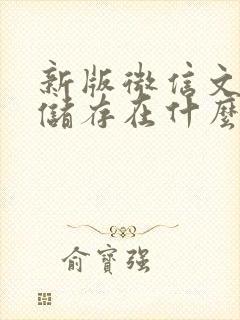 新版微信文
儲存在什麼
俞寶强